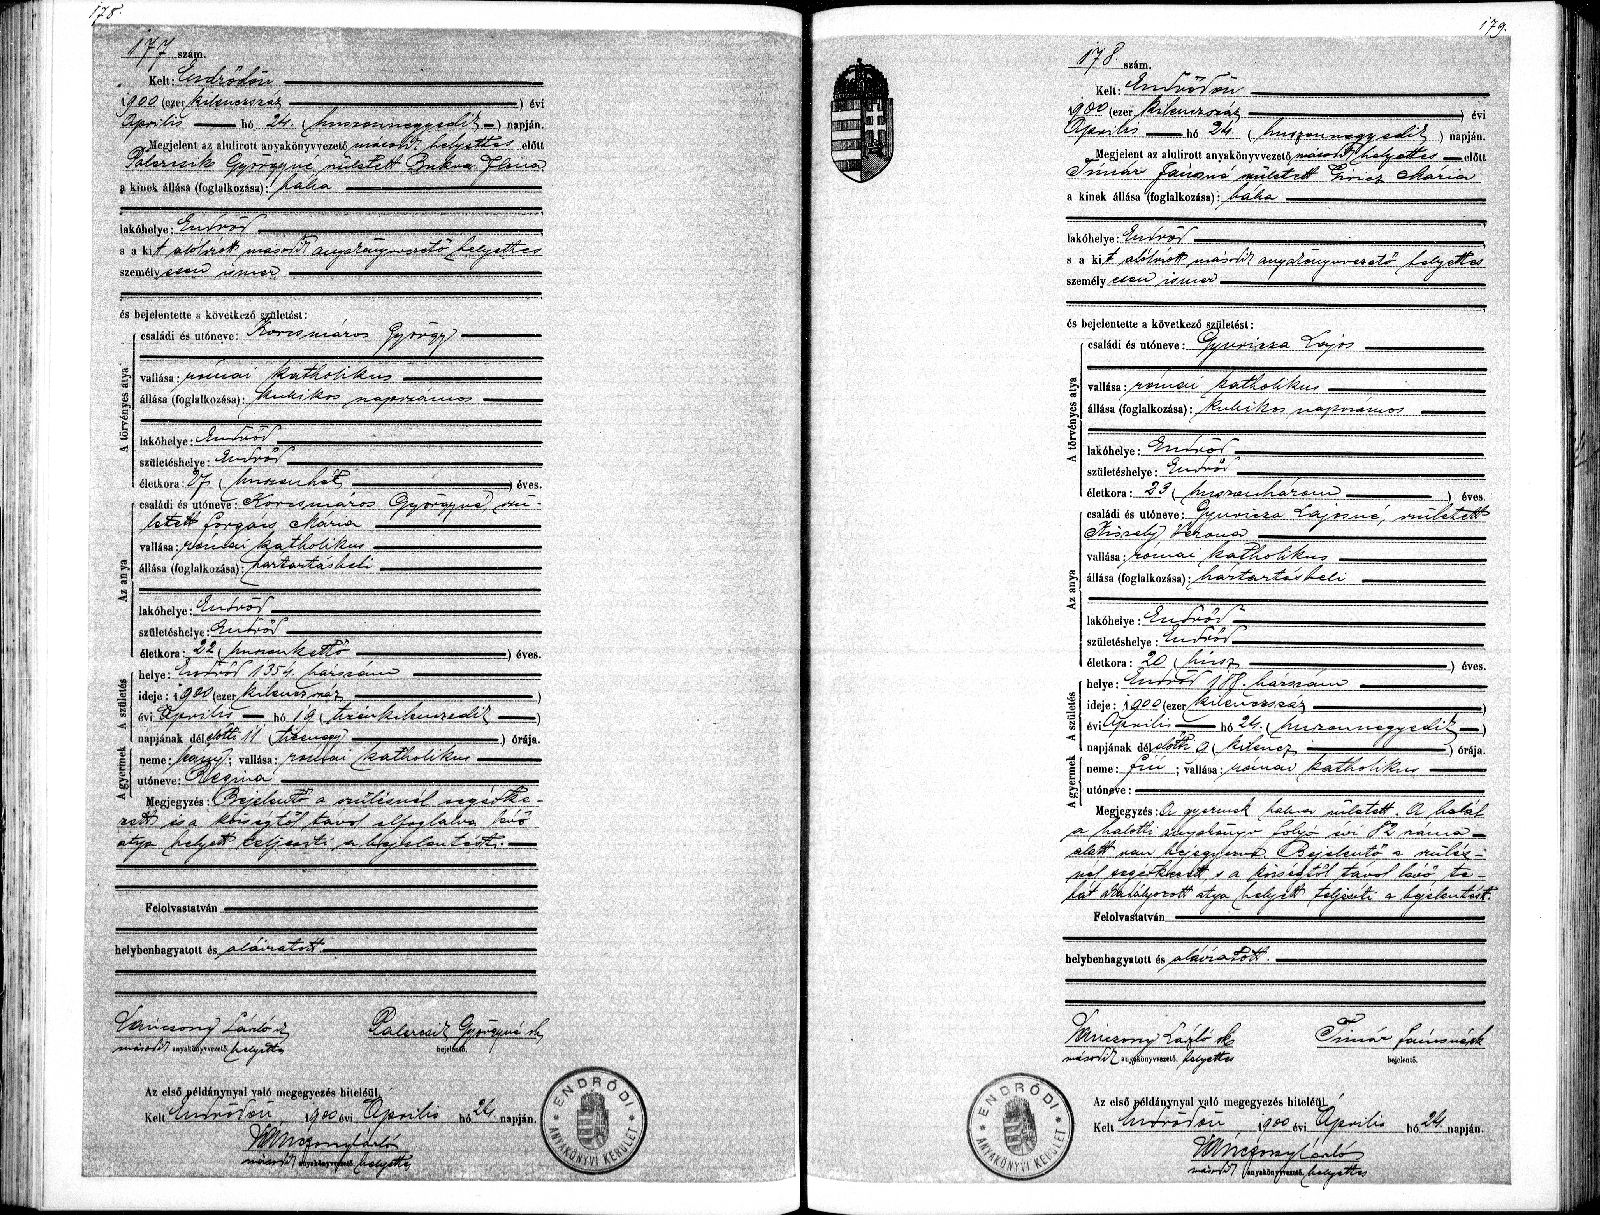 178.
177 szám.
Kelt: Endrődön
1900 (ezer kilenczszáz) évi
Április hó 24. (huszonnegyedik) napján.
Megjelent az alulirott anyakönyvvezető második helyettes előtt
Palercsik Györgyné született Ilona
a kinek állása (foglalkozása): bába
lakóhelye: Endrőd
s a kit alólírott második anyakönyvvezető helyettes
személyesen ismer
és bejelentette a következő születést:
A törvényes atya
családi és utóneve: Korcsmáros György
vallása: római katholikus
állása (foglalkozása): kubikos napszámos
lakóhelye: Endrőd
születéshelye: Endrőd
életkora: 27 (huszonhét) éves.
Az anya
családi és utóneve: Korcsmáros Györgyné, szü-
letett Forgács Mária
vallása: római katholikus
állása (foglalkozása): háztartásbeli
lakóhelye: Endrőd
születéshelye: Endrőd
életkora: 22 (huszonkettő) éves.
A születés
helye: Endrőd 1354. házszám
ideje: 1900 (ezer kilenczszáz)
évi Április hó 19 (tizenkilenczedik)
napjának délelőtti 11 (tizenegy) órája.
A gyermek
neme: leány; vallása: római katholikus
utóneve: Regina
Megjegyzés: Bejelentő a szülésnél segédke-
zett és a községtől távol elfoglalva lévő
atya helyett teljesíti a bejelentést.
Felolvastatván
helybenhagyatott és aláiratott.
Vánczony László sk
második anyakönyvvezető helyettes
Palercsik Györgyné sk
bejelentő.
Az első példánynyal való megegyezés hiteléül.
Kelt Endrődön 1900 évi Április hó 24 napján.
Vánczony László
második anyakönyvvezető helyettes
ENDRŐDI ANYAKÖNYVI KERÜLET
179.
178 szám.
Kelt: Endrődön
1900 (ezer kilenczszáz) évi
Április hó 24 (huszonnegyedik) napján.
Megjelent az alulirott anyakönyvvezető második helyettes előtt
Tímár Jánosné született Mária
a kinek állása (foglalkozása): bába
lakóhelye: Endrőd
s a kit alólírott második anyakönyvvezető helyettes
személyesen ismer
és bejelentette a következő születést:
A törvényes atya
családi és utóneve: Gyuricza Lajos
vallása: római katholikus
állása (foglalkozása): kubikos napszámos
lakóhelye: Endrőd
születéshelye: Endrőd
életkora: 23 (huszonhárom) éves.
Az anya
családi és utóneve: Gyuricza Lajosné, született
Kisely Verona
vallása: római katholikus
állása (foglalkozása): háztartásbeli
lakóhelye: Endrőd
születéshelye: Endrőd
életkora: 20 (húsz) éves.
A születés
helye: Endrőd 108. házszám
ideje: 1900 (ezer kilenczszáz)
évi Április hó 24. (huszonnegyedik)
napjának délelőtti 9 (kilencz) órája.
A gyermek
neme: fiú; vallása: római katholikus
utóneve:
Megjegyzés: A gyermek halva született. A halál
a halotti anyakönyv folyó évi 82 száma
alatt van bejegyezve. Bejelentő a szülés-
nél segédkezett s a községtől távol lévő te-
hát akadályozott atya helyett teljesíti a bejelentést.
Felolvastatván
helybenhagyatott és aláíratott.
Vánczony László sk
második anyakönyvvezető helyettes
Tímár Jánosné sk
bejelentő.
Az első példánynyal való megegyezés hiteléül.
Kelt Endrődön 1900 évi Április hó 24 napján.
Vánczony László
második anyakönyvvezető helyettes
ENDRŐDI ANYAKÖNYVI KERÜLET